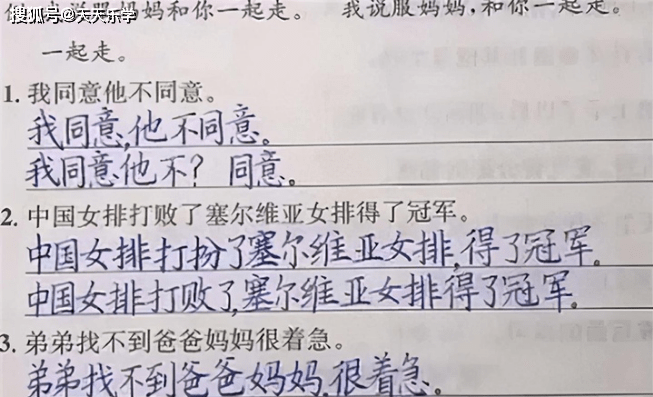 搜狐号@天天乐学
说服妈妈和你一起走。 我说服妈妈,和你一起走。
一起走。
1. 我同意他不同意。
我同意,他不同意。
我同意他不？同意。
2. 中国女排打败了塞尔维亚女排得了冠军。
中国女排打扮了塞尔维亚女排,得了冠军。
中国女排打败了,塞尔维亚女排得了冠军。
3. 弟弟找不到爸爸妈妈很着急。
弟弟找不到爸爸妈妈,很着急。